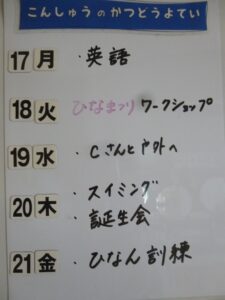 こんしゅうのかつどうよてい
17 月 ・英語
18 火 ひなまつり ワークショップ
19 水 ・Cさんと戸外へ
20 木 ・スイミング
・誕生会
21 金 ・ひなん訓練